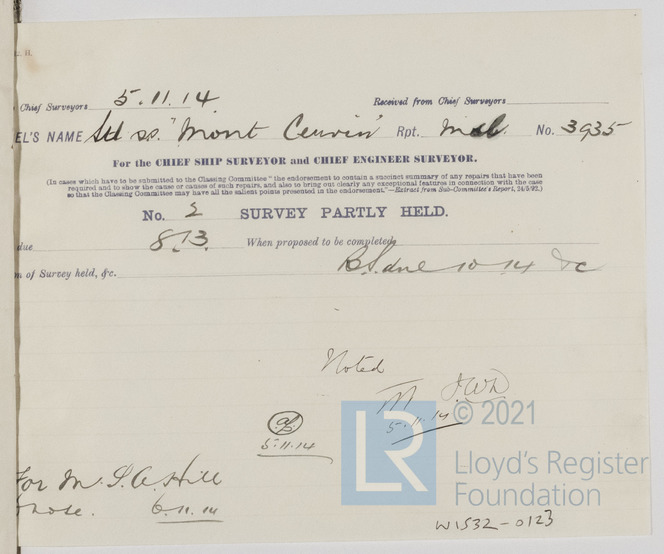 Chief Surveyors 5.11.14 Received from Chief Surveyors
EL'S NAME Std ss. "Mont Cervin" Rpt. No. 3935
For the CHIEF SHIP SURVEYOR and CHIEF ENGINEER SURVEYOR.
(In cases which have to be submitted to the Classing Committee "the endorsement to contain a succinct summary of any repairs that have been
required and to show the cause or causes of such repairs, and also to bring out clearly any exceptional features in connection with the case
so that the Classing Committee may have all the salient points presented in the endorsement."—Extract from Sub-Committee's Report, 24/5/92.)
No. 2 SURVEY PARTLY HELD.
due 8.13. When proposed to be completed
m of Survey held, &c. B.S. due 10.14 &c
Noted
5.11.14
5.11.14
© 2021
LR
Lloyd's Register
Foundation
For Mr. S. A. Hill
6.11.14
W1532-0123